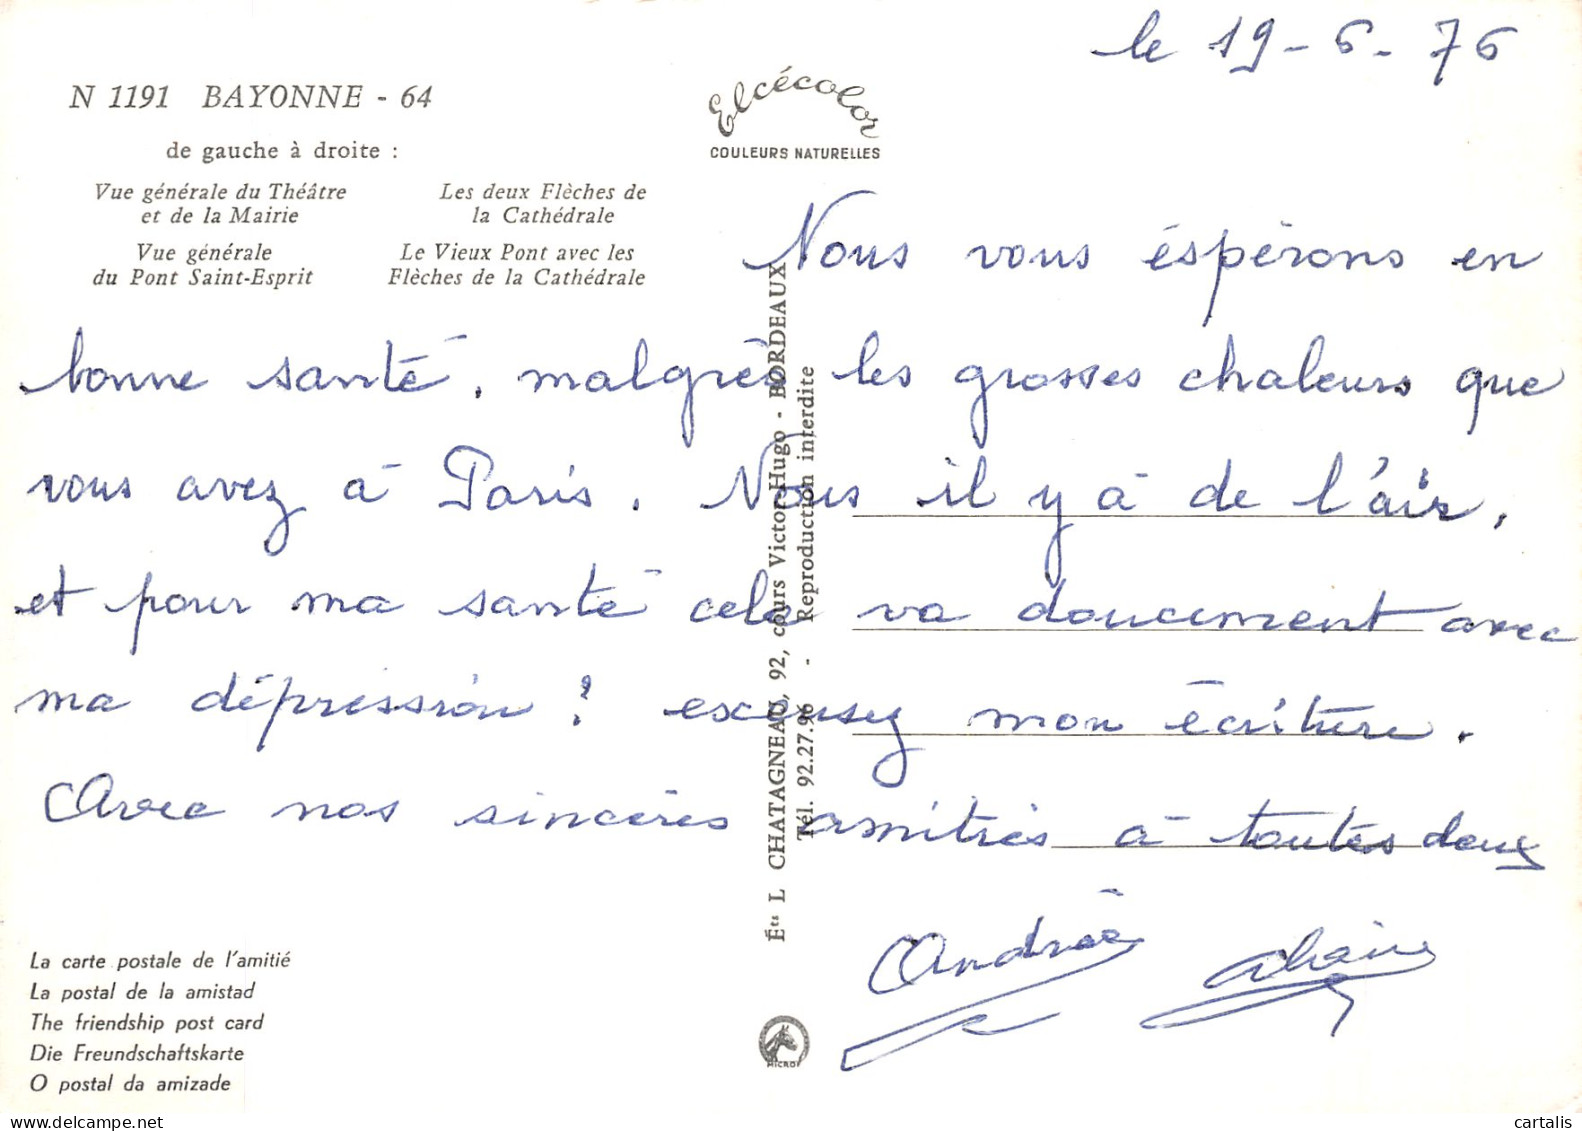 le 19-6-76
N 1191 BAYONNE - 64
de gauche à droite :
Vue générale du Théâtre
et de la Mairie
Les deux Flèches de
la Cathédrale
Vue générale
du Pont Saint-Esprit
Le Vieux Pont avec les
Flèches de la Cathédrale
Elcécolor
COULEURS NATURELLES
Nous vous éspérons en
bonne santé, malgrès les grosses chaleurs que
vous avez à Paris. Nous il y à de l'air,
et pour ma santé cela va doucement avec
ma dépression ? excusez mon écriture.
Avec nos sincéres amitiés à toutes deux
Andrée
Éts L CHATAGNEAU, 92, cours Victor-Hugo - BORDEAUX
Tél. 92.27.96 - Reproduction interdite
La carte postale de l'amitié
La postal de la amistad
The friendship post card
Die Freundschaftskarte
O postal da amizade
MICRO
cartalis